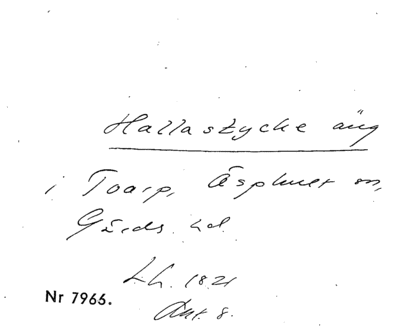 Hallastycke äng
i Toarp, Äsphult sn,
Gärds hd.
Lh. 1821
Akt 8.
Nr 7966.